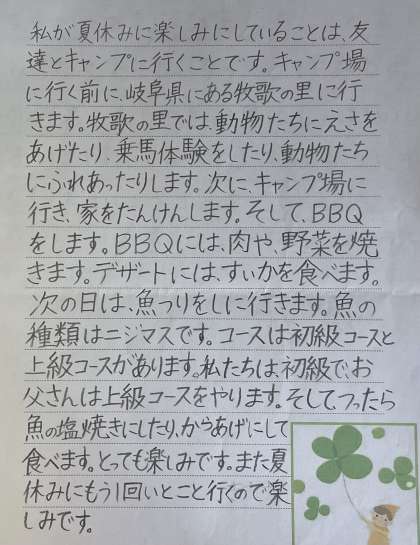 私が夏休みに楽しみにしていることは、友
達とキャンプに行くことです。キャンプ場
に行く前に、岐阜県にある牧歌の里に行
きます。牧歌の里では、動物たちにえさを
あげたり、乗馬体験をしたり、動物たち
にふれあったりします。次に、キャンプ場に
行き、家をたんけんします。そして、BBQ
をします。BBQには、肉や、野菜を焼
きます。デザートには、すいかを食べます。
次の日は、魚つりをしに行きます。魚の
種類はニジマスです。コースは初級コースと
上級コースがあります。私たちは、初級で、お
父さんは上級コースをやります。そして、つったら
魚の塩焼きにしたり、からあげにして
食べます。とっても楽しみです。また夏
休みにもう1回いとこと行くので楽
しみです。